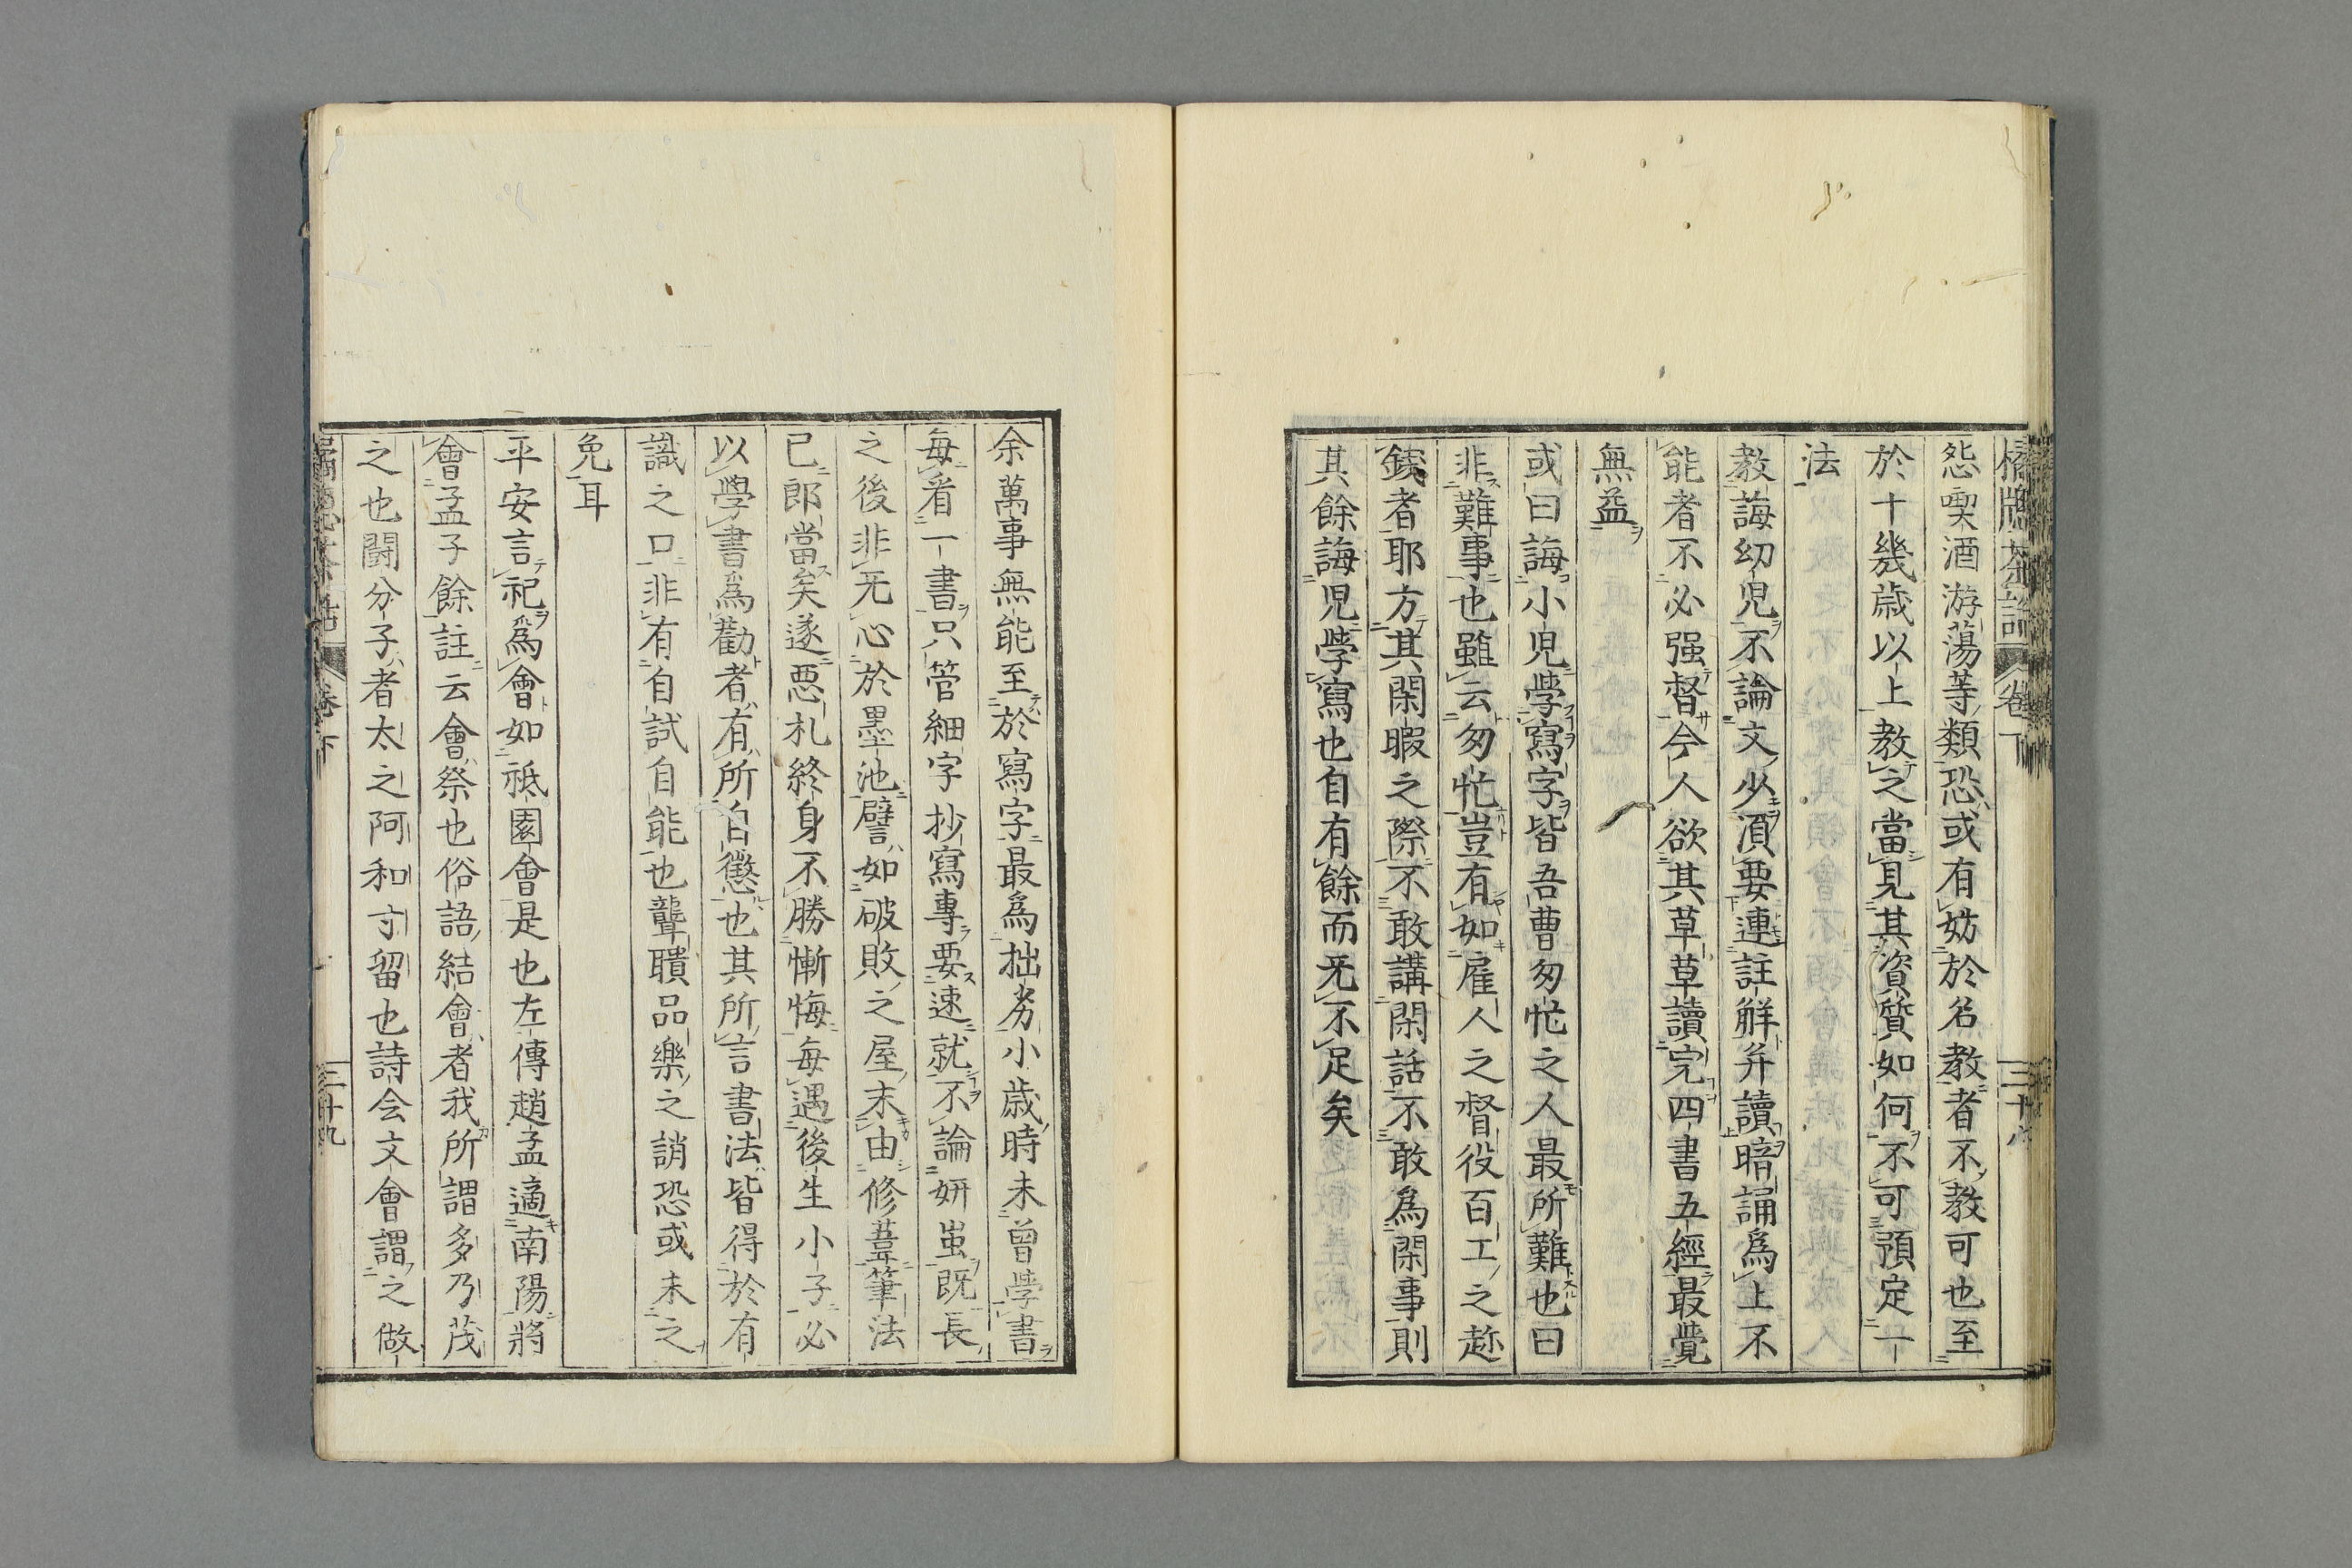 橘牕茶話 卷下 三十八
怨喫酒游蕩等類恐或有妨於名教者不教可也至
於十幾歳以上教之當見其資質如何不可預定一
法
教誨幼児不論文少須要連註觧并讀暗誦爲上不
能者不必强督今人欲其草草讀完四書五經最覺
無益
或曰誨小児學寫字皆吾曹匆忙之人最所難也曰
非難事也雖云匆忙豈有如雇人之督役百工之趂
錢者耶方其閑暇之際不敢講閑話不敢爲閑事則
其餘誨児學寫也自有餘而旡不足矣
余萬事無能至於寫字最爲拙劣小歳時未曾學書
每看一書只管細字抄寫專要速就不論妍蚩既長
之後非旡心於墨池譬如破敗之屋末由修葺筆法
已郎當矣遂惡札終身不勝慚悔每遇後生小子必
以學書爲勸者有所自懲也其所言書法皆得於有
識之口非有自試自能也聾聵品樂之誚恐或未之
免耳
平安言祀爲會如祗園會是也左傳趙孟適南陽將
會孟子餘註云會祭也俗語結會者我所謂多乃茂
之也闘分子者太之阿和寸留也詩会文會謂之做
卷下 三十九